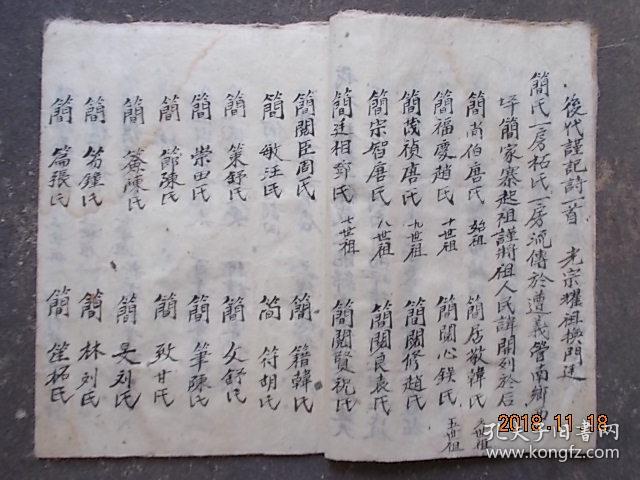 後代謹記詩一首 光宗耀祖換門廷
簡氏一房柘氏一房流傳於遵義管南鄉
坪簡家寨起祖謹將祖人民諱開列於后
簡尚伯唐氏 始祖 簡居敬韓氏 世祖
簡福慶趙氏 十世祖 簡關心錢氏 五世祖
簡茂禎唐氏 九世祖 簡關修趙氏
簡宗智唐氏 八世祖 簡關良袁氏
簡廷相鄧氏 七世祖 簡關賢祝氏
簡關臣周氏 簡籍韓氏
簡敏汪氏 简符胡氏
簡策舒氏 簡文舒氏
簡崇田氏 簡筆陳氏
簡節陳氏 簡致甘氏
簡陳氏 簡旲刘氏
簡鐘氏 簡林刘氏
簡篇張氏 簡笙柘氏
2018.11.18
孔夫子旧书网
www.kongfz.com